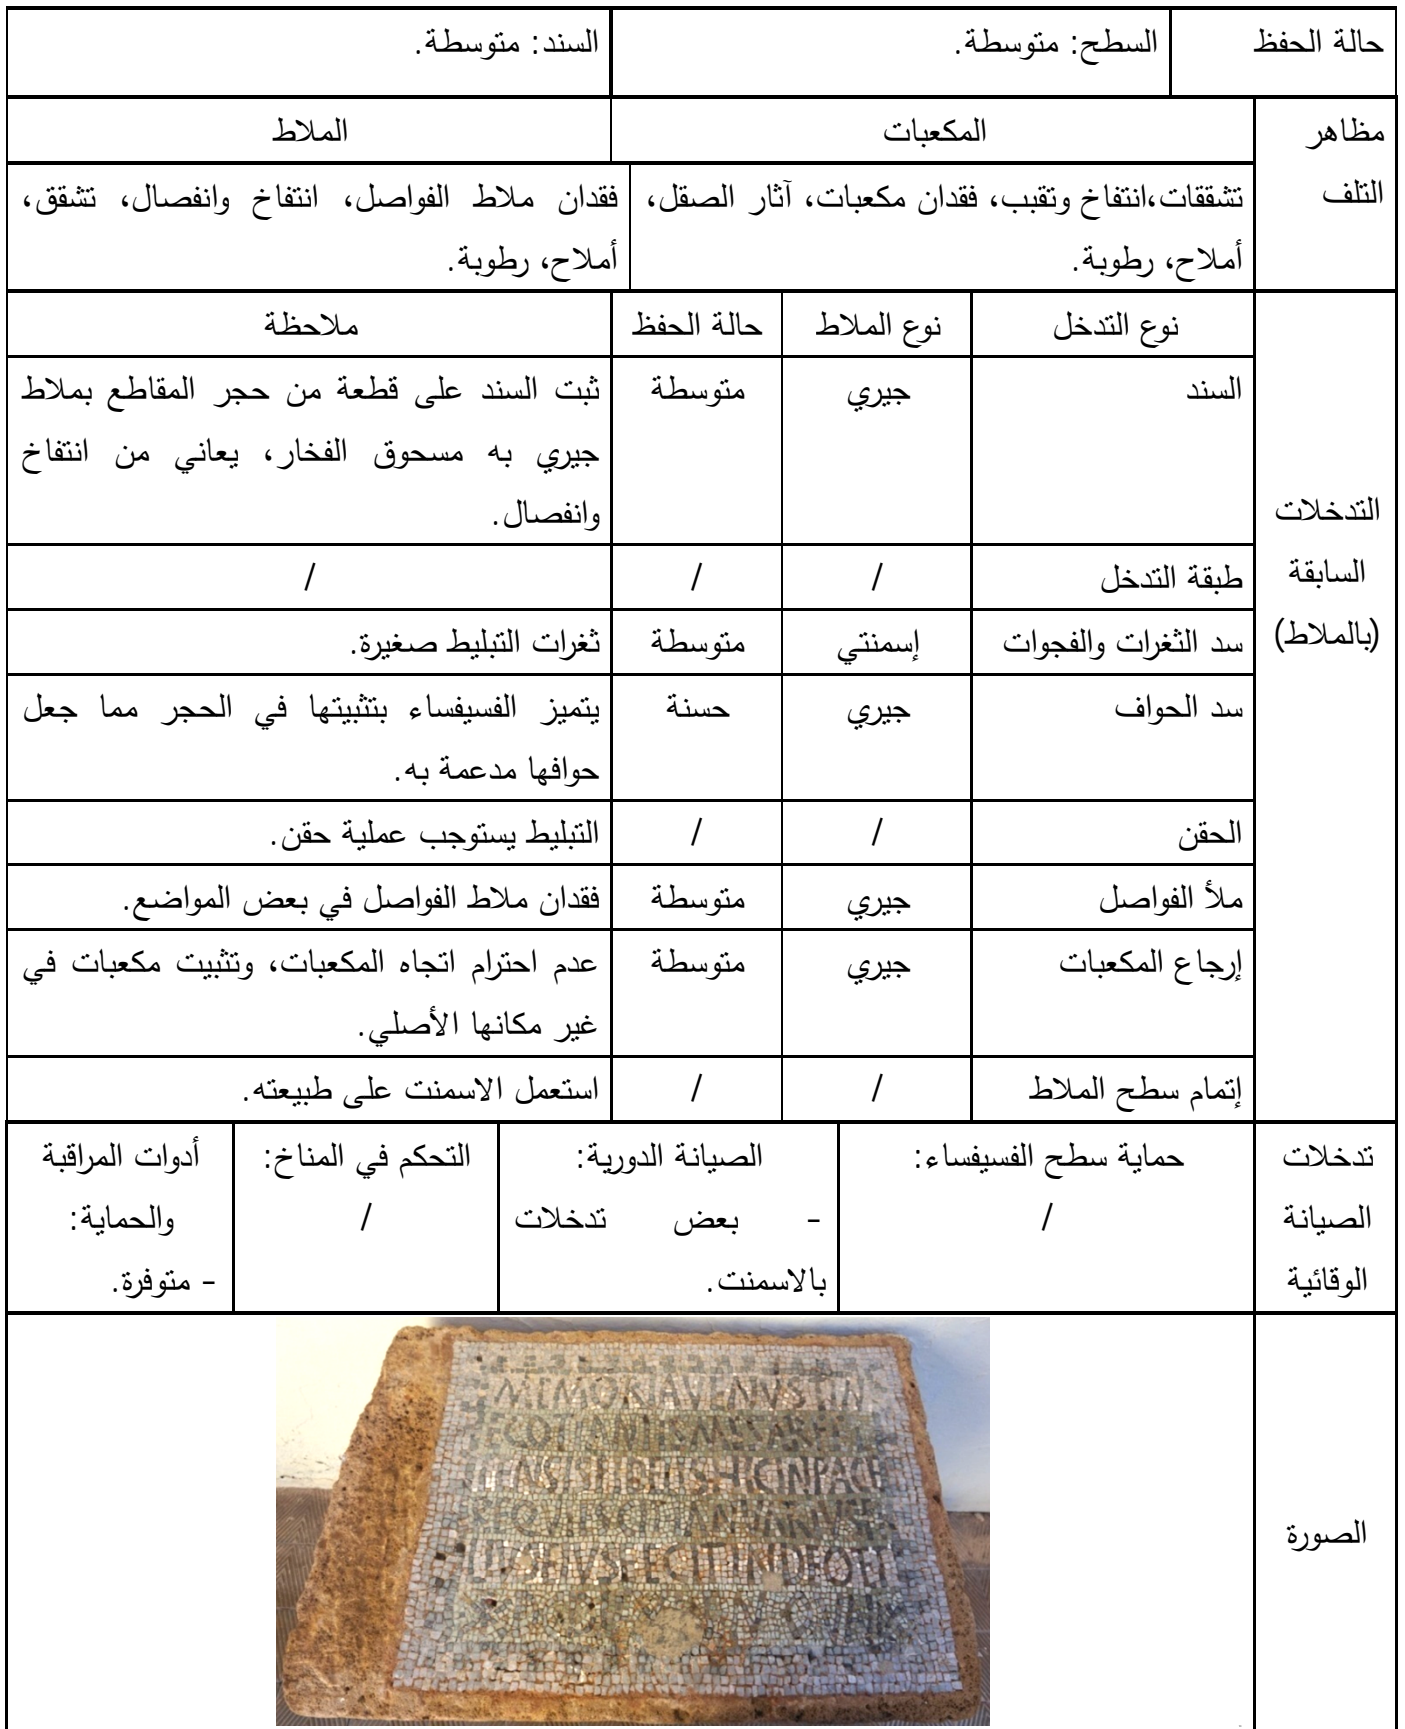 حالة الحفظ
السطح: متوسطة.
السند: متوسطة.
مظاهر
التلف
المكعبات
الملاط
تشققات،انتفاخ وتقبب، فقدان مكعبات، آثار الصقل،
أملاح، رطوبة.
فقدان ملاط الفواصل، انتفاخ وانفصال، تشقق،
أملاح، رطوبة.
التدخلات
السابقة
(بالملاط)
نوع التدخل
نوع الملاط
حالة الحفظ
ملاحظة
السند
جيري
متوسطة
ثبت السند على قطعة من حجر المقاطع بملاط
جيري به مسحوق الفخار، يعاني من انتفاخ
وانفصال.
طبقة التدخل
/
/
/
سد الثغرات والفجوات
إسمنتي
متوسطة
ثغرات التبليط صغيرة.
سد الحواف
جيري
حسنة
يتميز الفسيفساء بتثبيتها في الحجر مما جعل
حوافها مدعمة به.
الحقن
/
/
التبليط يستوجب عملية حقن.
ملأ الفواصل
جيري
متوسطة
فقدان ملاط الفواصل في بعض المواضع.
إرجاع المكعبات
جيري
متوسطة
عدم احترام اتجاه المكعبات، وتثبيت مكعبات في
غير مكانها الأصلي.
إتمام سطح الملاط
/
/
استعمل الاسمنت على طبيعته.
تدخلات
الصيانة
الوقائية
حماية سطح الفسيفساء:
/
الصيانة الدورية:
- بعض تدخلات
بالاسمنت.
التحكم في المناخ:
/
أدوات المراقبة
والحماية:
- متوفرة.
الصورة